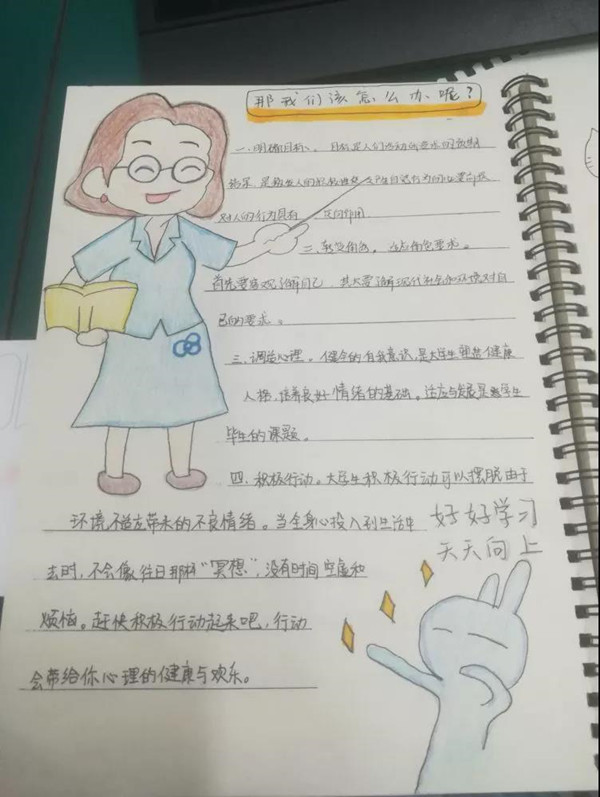 那我们该怎么办呢？
一、明确目标。目标是人们活动所要求的预期
结果，是激发人的积极性
对人的行为具有 定向作用。
二、转变角色，适应角色要求。
首先要客观了解自己，其次要了解现代社会和环境对自
己的要求。
三、调适心理。健全的自我意识，是大学生塑造健康
人格，培养良好情绪的基础。适应与发展是大学生
毕生的课题。
四、积极行动。大学生积极行动可以摆脱由于
环境不适应带来的不良情绪。当全身心投入到生活中
去时，不会像往日那样“冥想”，没有时间空虚和
烦恼。赶快积极行动起来吧，行动
会带给你心理的健康与欢乐。
好好学习
天天向上